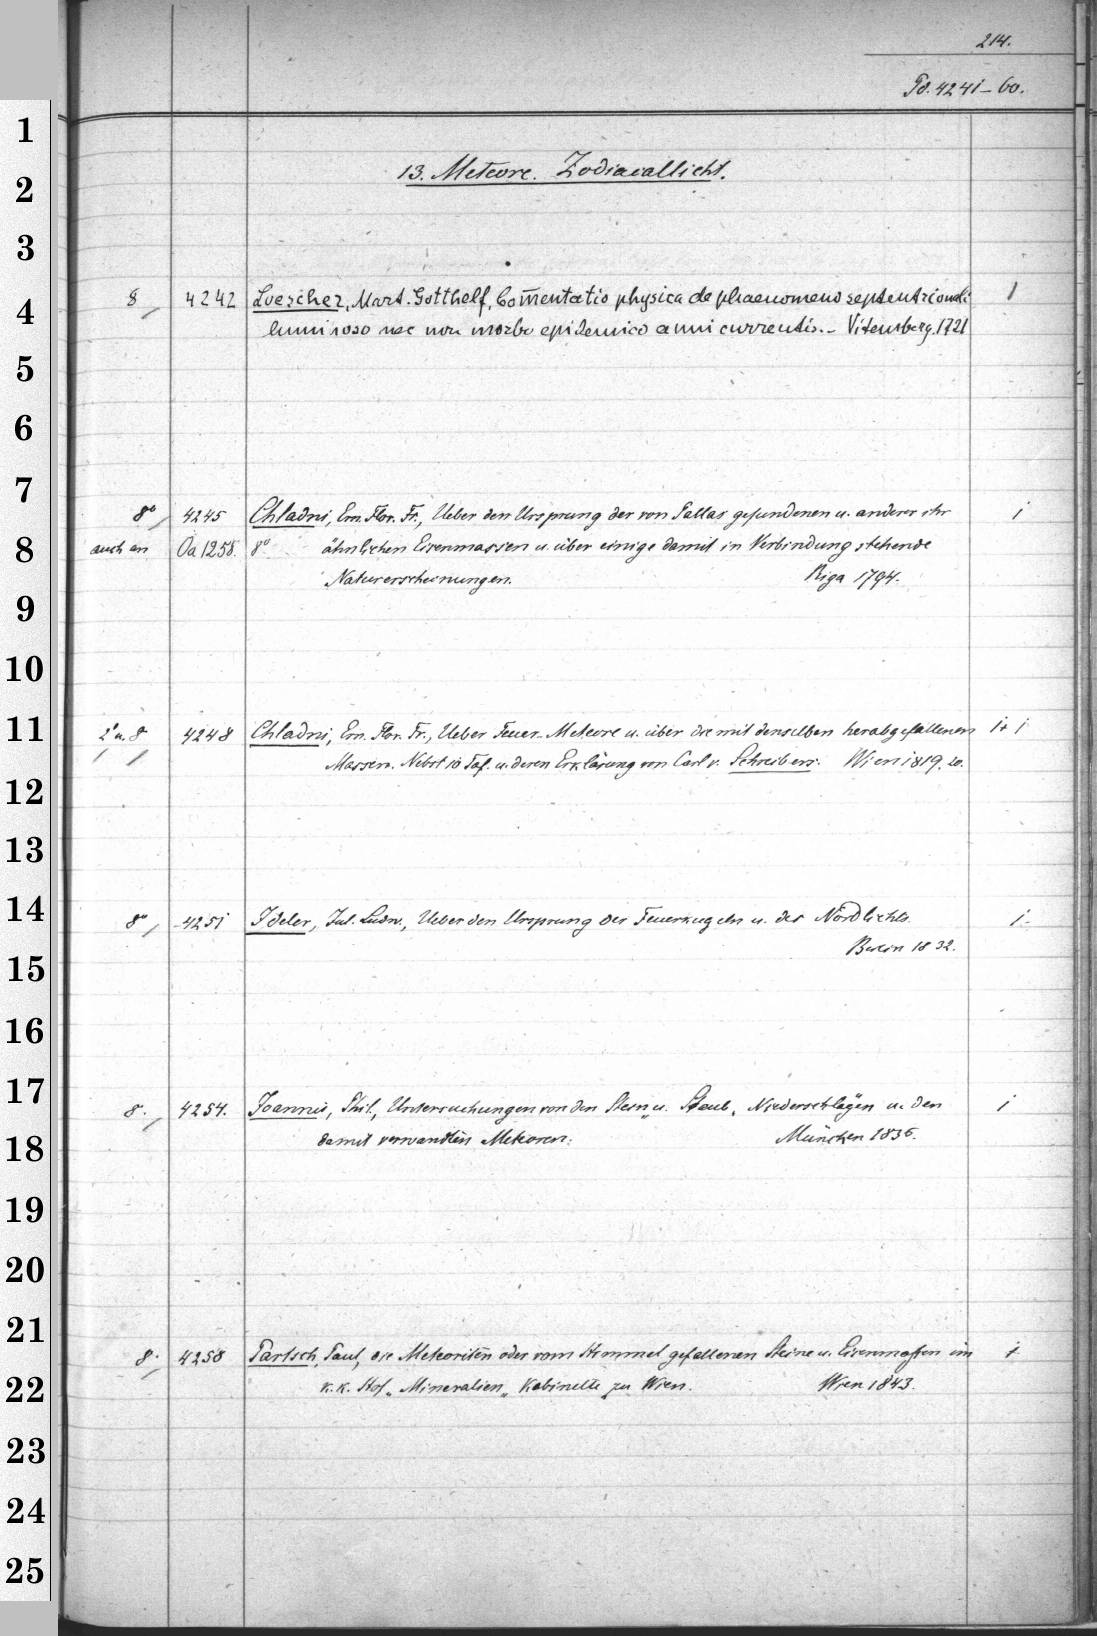 214.
Pd. 4241-60.
1
13. Meteore. Zodiacallicht.
2
3
8 4242 Loescher, Mart. Gotthelf, Com̄entatio physica de phaenomeno septentrionali 1
4
luminoso nec non morbo epidemico anni currentis. - Vitemberg. 1721
5
6
7
8° 4245 Chladni, Ern. Flor. Fr., Ueber den Ursprung der von Pallas gefundenen u. anderer ihr 1
8
auch an Oa 1258. 8° ähnlichen Eisenmassen u. über einige damit in Verbindung stehende
Naturerscheinungen. Riga 1794.
9
10
11
2° u. 8 4248 Chladni, Ern. Flor. Fr., Ueber Feuer-Meteore u. über die mit denselben herabgefallenen 1+1
Massen. Nebst 10 Taf. u. deren Erklärung von Carl v. Schreibers. Wien 1819. 20.
12
13
14
8° 4251 Ideler, Jul. Ludw., Ueber den Ursprung der Feuerkugeln u. des Nordlichts. 1
Berlin 1832.
15
16
17
8. 4254. Ioannis, Phil., Untersuchungen von den Stern- u. Staub-Niederschlägen u. den 1
damit verwandten Meteoren. München 1836.
18
19
20
21
8. 4258 Partsch, Paul, die Meteoriten oder vom Himmel gefallenen Steine u. Eisenmassen im 1
k. k. Hof-Mineralien-Kabinette zu Wien. Wien 1843.
22
23
24
25